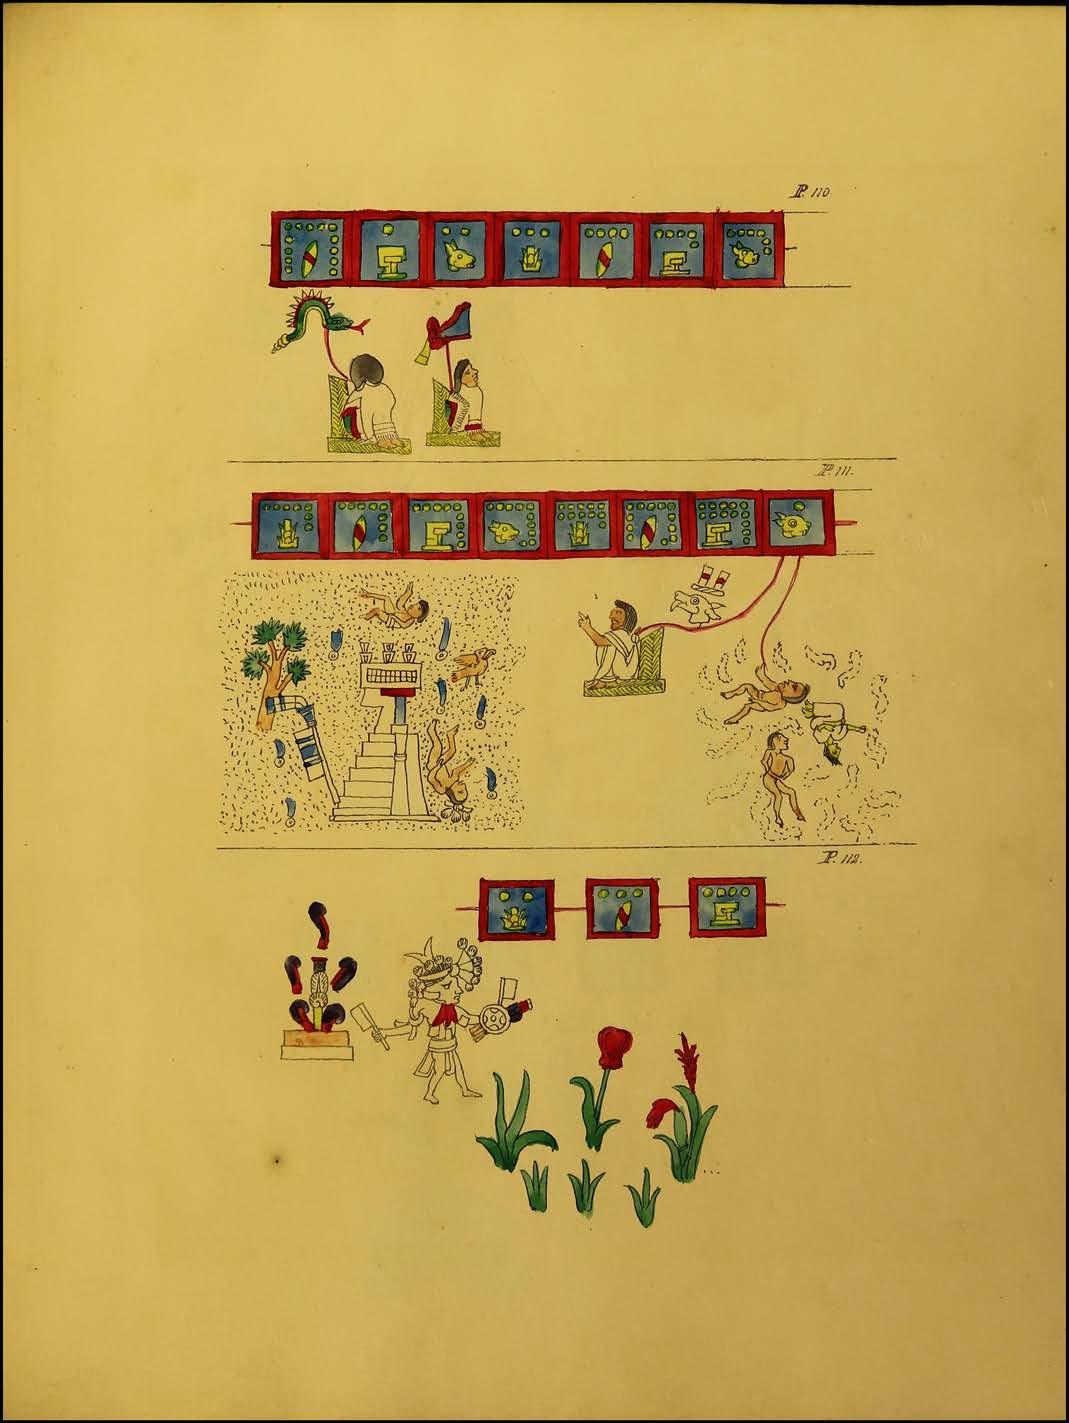 P. 110
P. 111.
P. 112.